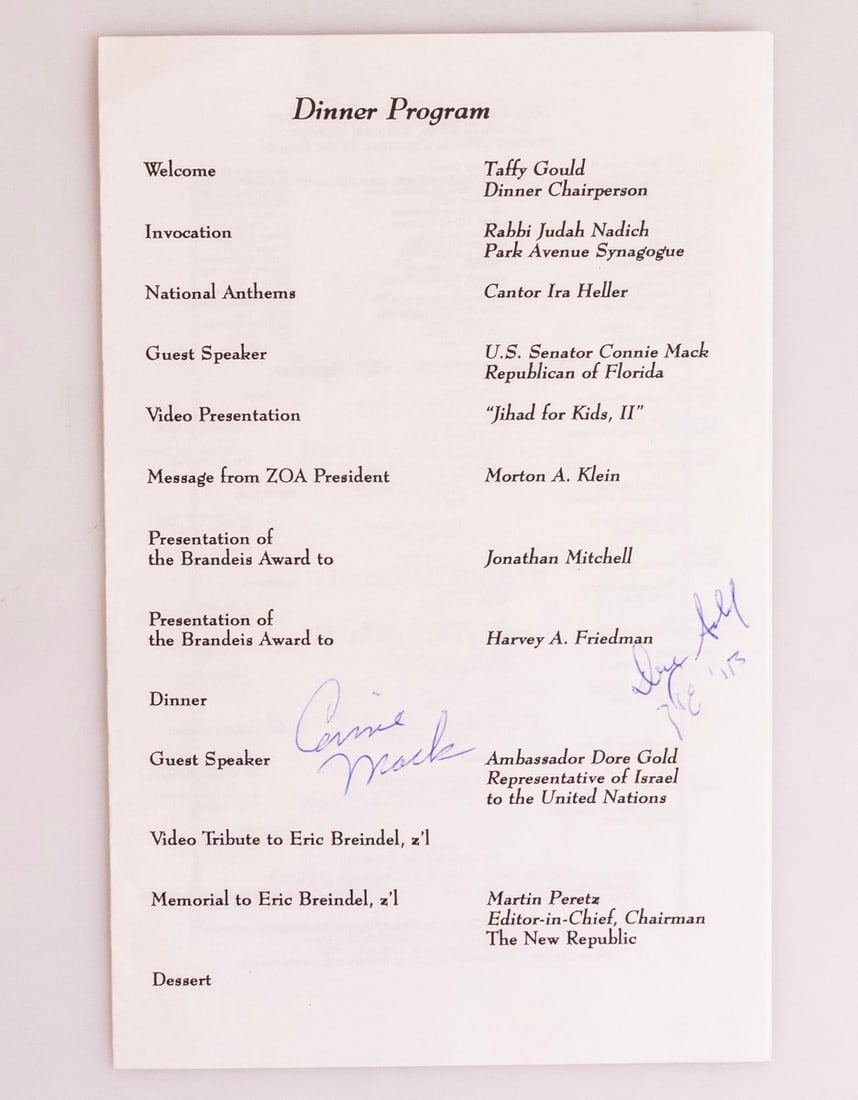 Dinner Program
Welcome
Taffy Gould
Dinner Chairperson
Invocation
Rabbi Judah Nadich
Park Avenue Synagogue
National Anthems
Cantor Ira Heller
Guest Speaker
U.S. Senator Connie Mack
Republican of Florida
Video Presentation
"Jihad for Kids, II"
Message from ZOA President
Morton A. Klein
Presentation of
the Brandeis Award to
Jonathan Mitchell
Presentation of
the Brandeis Award to
Harvey A. Friedman
Dore Gold
Dinner
Connie
Mack
Guest Speaker
Ambassador Dore Gold
Representative of Israel
to the United Nations
Video Tribute to Eric Breindel, z'l
Memorial to Eric Breindel, z'l
Martin Peretz
Editor-in-Chief, Chairman
The New Republic
Dessert